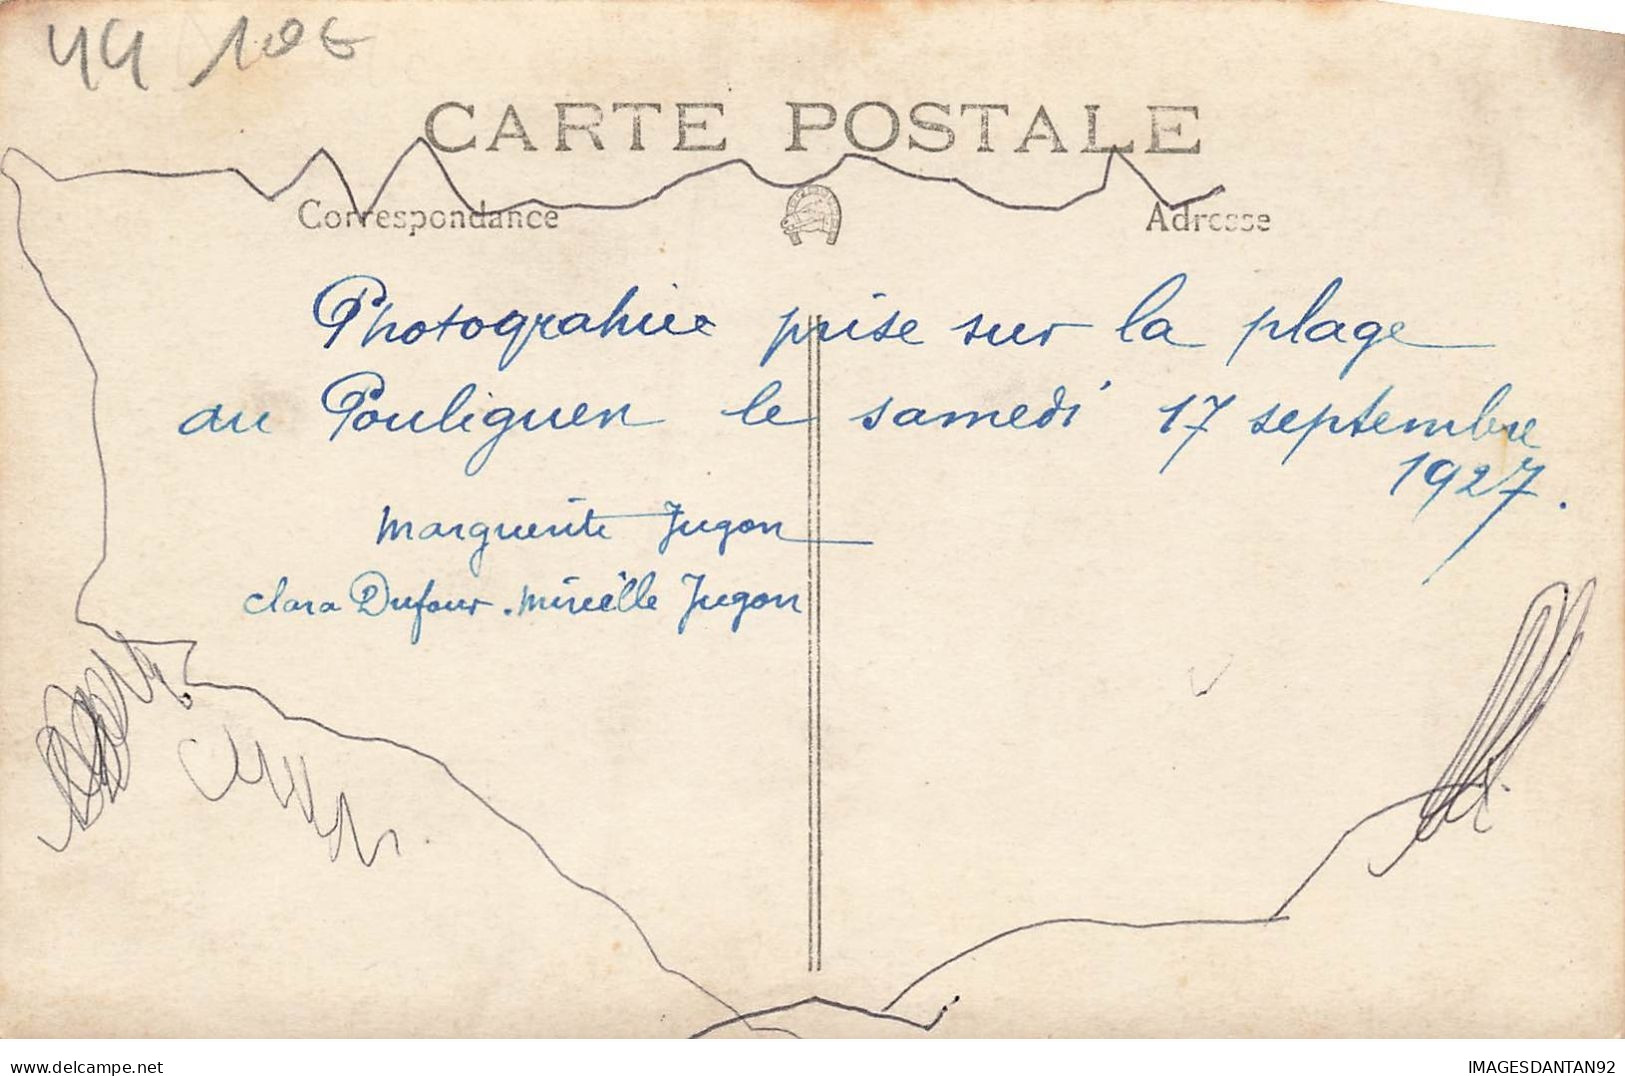 44 10€
CARTE POSTALE
Correspondance
Adresse
Photograhie prise sur la plage
au Pouliguen le samedi 17 septembre
1927.
Marguerite Jugon
Clara Dufour. Mireille Jugon
IMAGESDANTAN92